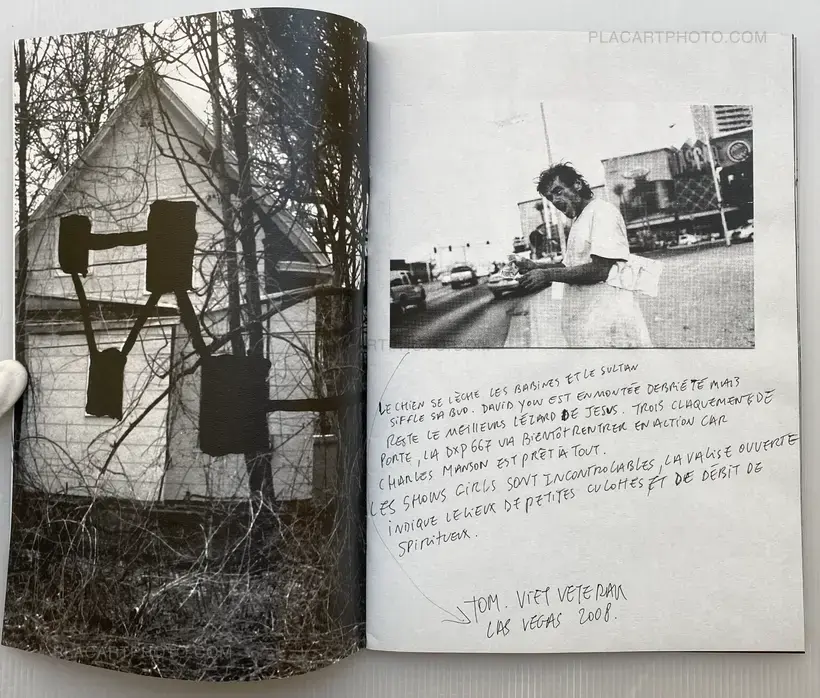 PLACARTPHOTO.COM
LE CHIEN SE LÈCHE LES BABINES ET LE SULTAN
SIFFLE SA BUD. DAVID YOW EST EN MONTÉE DEBRIÉTÉ MAIS
RESTE LE MEILLEURS LÉZARD DE JESUS. TROIS CLAQUEMENT DE
PORTE, LA DXP 667 VA BIENTÔT RENTRER EN ACTION CAR
CHARLES MANSON EST PRÊT À TOUT.
LES SHOWS GIRLS SONT INCONTROLABLES, LA VALISE OUVERTE
INDIQUE LE LIEUX DE PETITES CULOTTES ET DE DÉBIT DE
SPIRITUEUX.
TOM. VIET VETERAN
LAS VEGAS 2008.
PLACARTPHOTO.COM